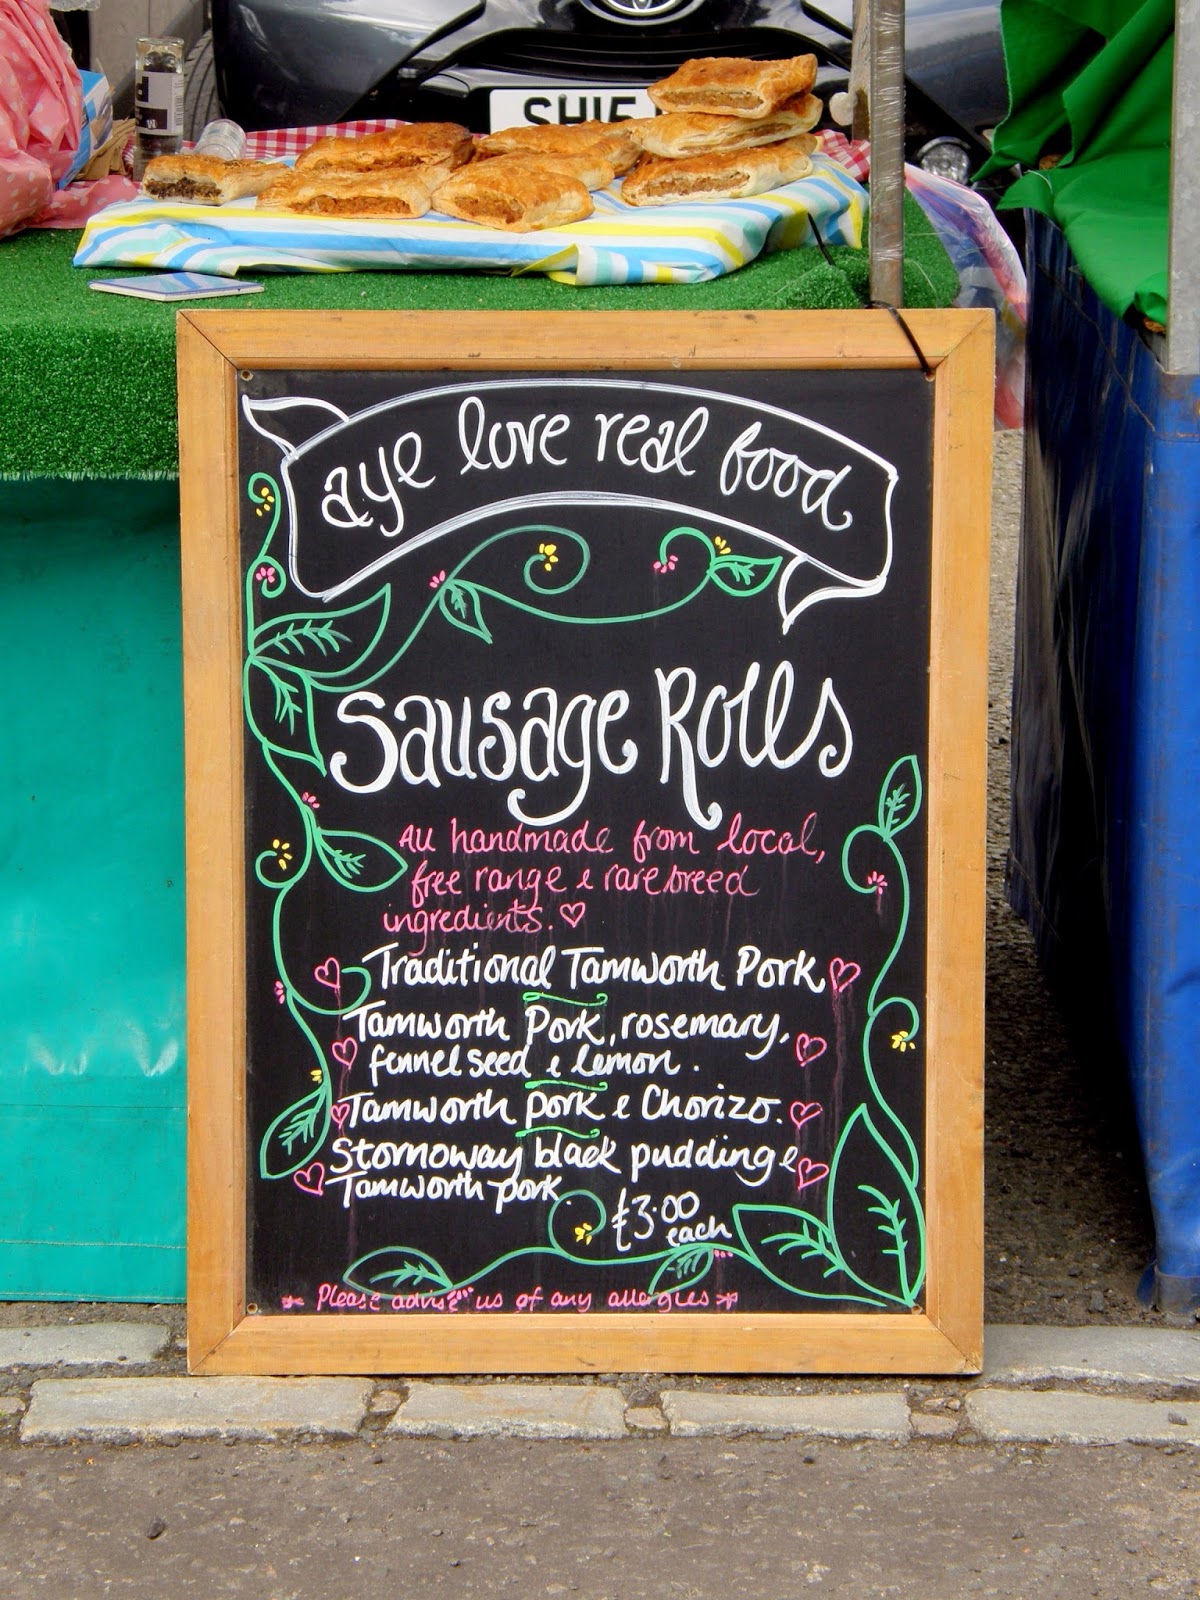 SH15
aye love real food
Sausage Rolls
All handmade from local,
free range & rare breed
ingredients.
Traditional Tamworth Pork
Tamworth Pork, rosemary,
fennel seed & lemon.
Tamworth pork & Chorizo.
Stornoway black pudding &
Tamworth pork
£3.00
each
Please advise us of any allergies